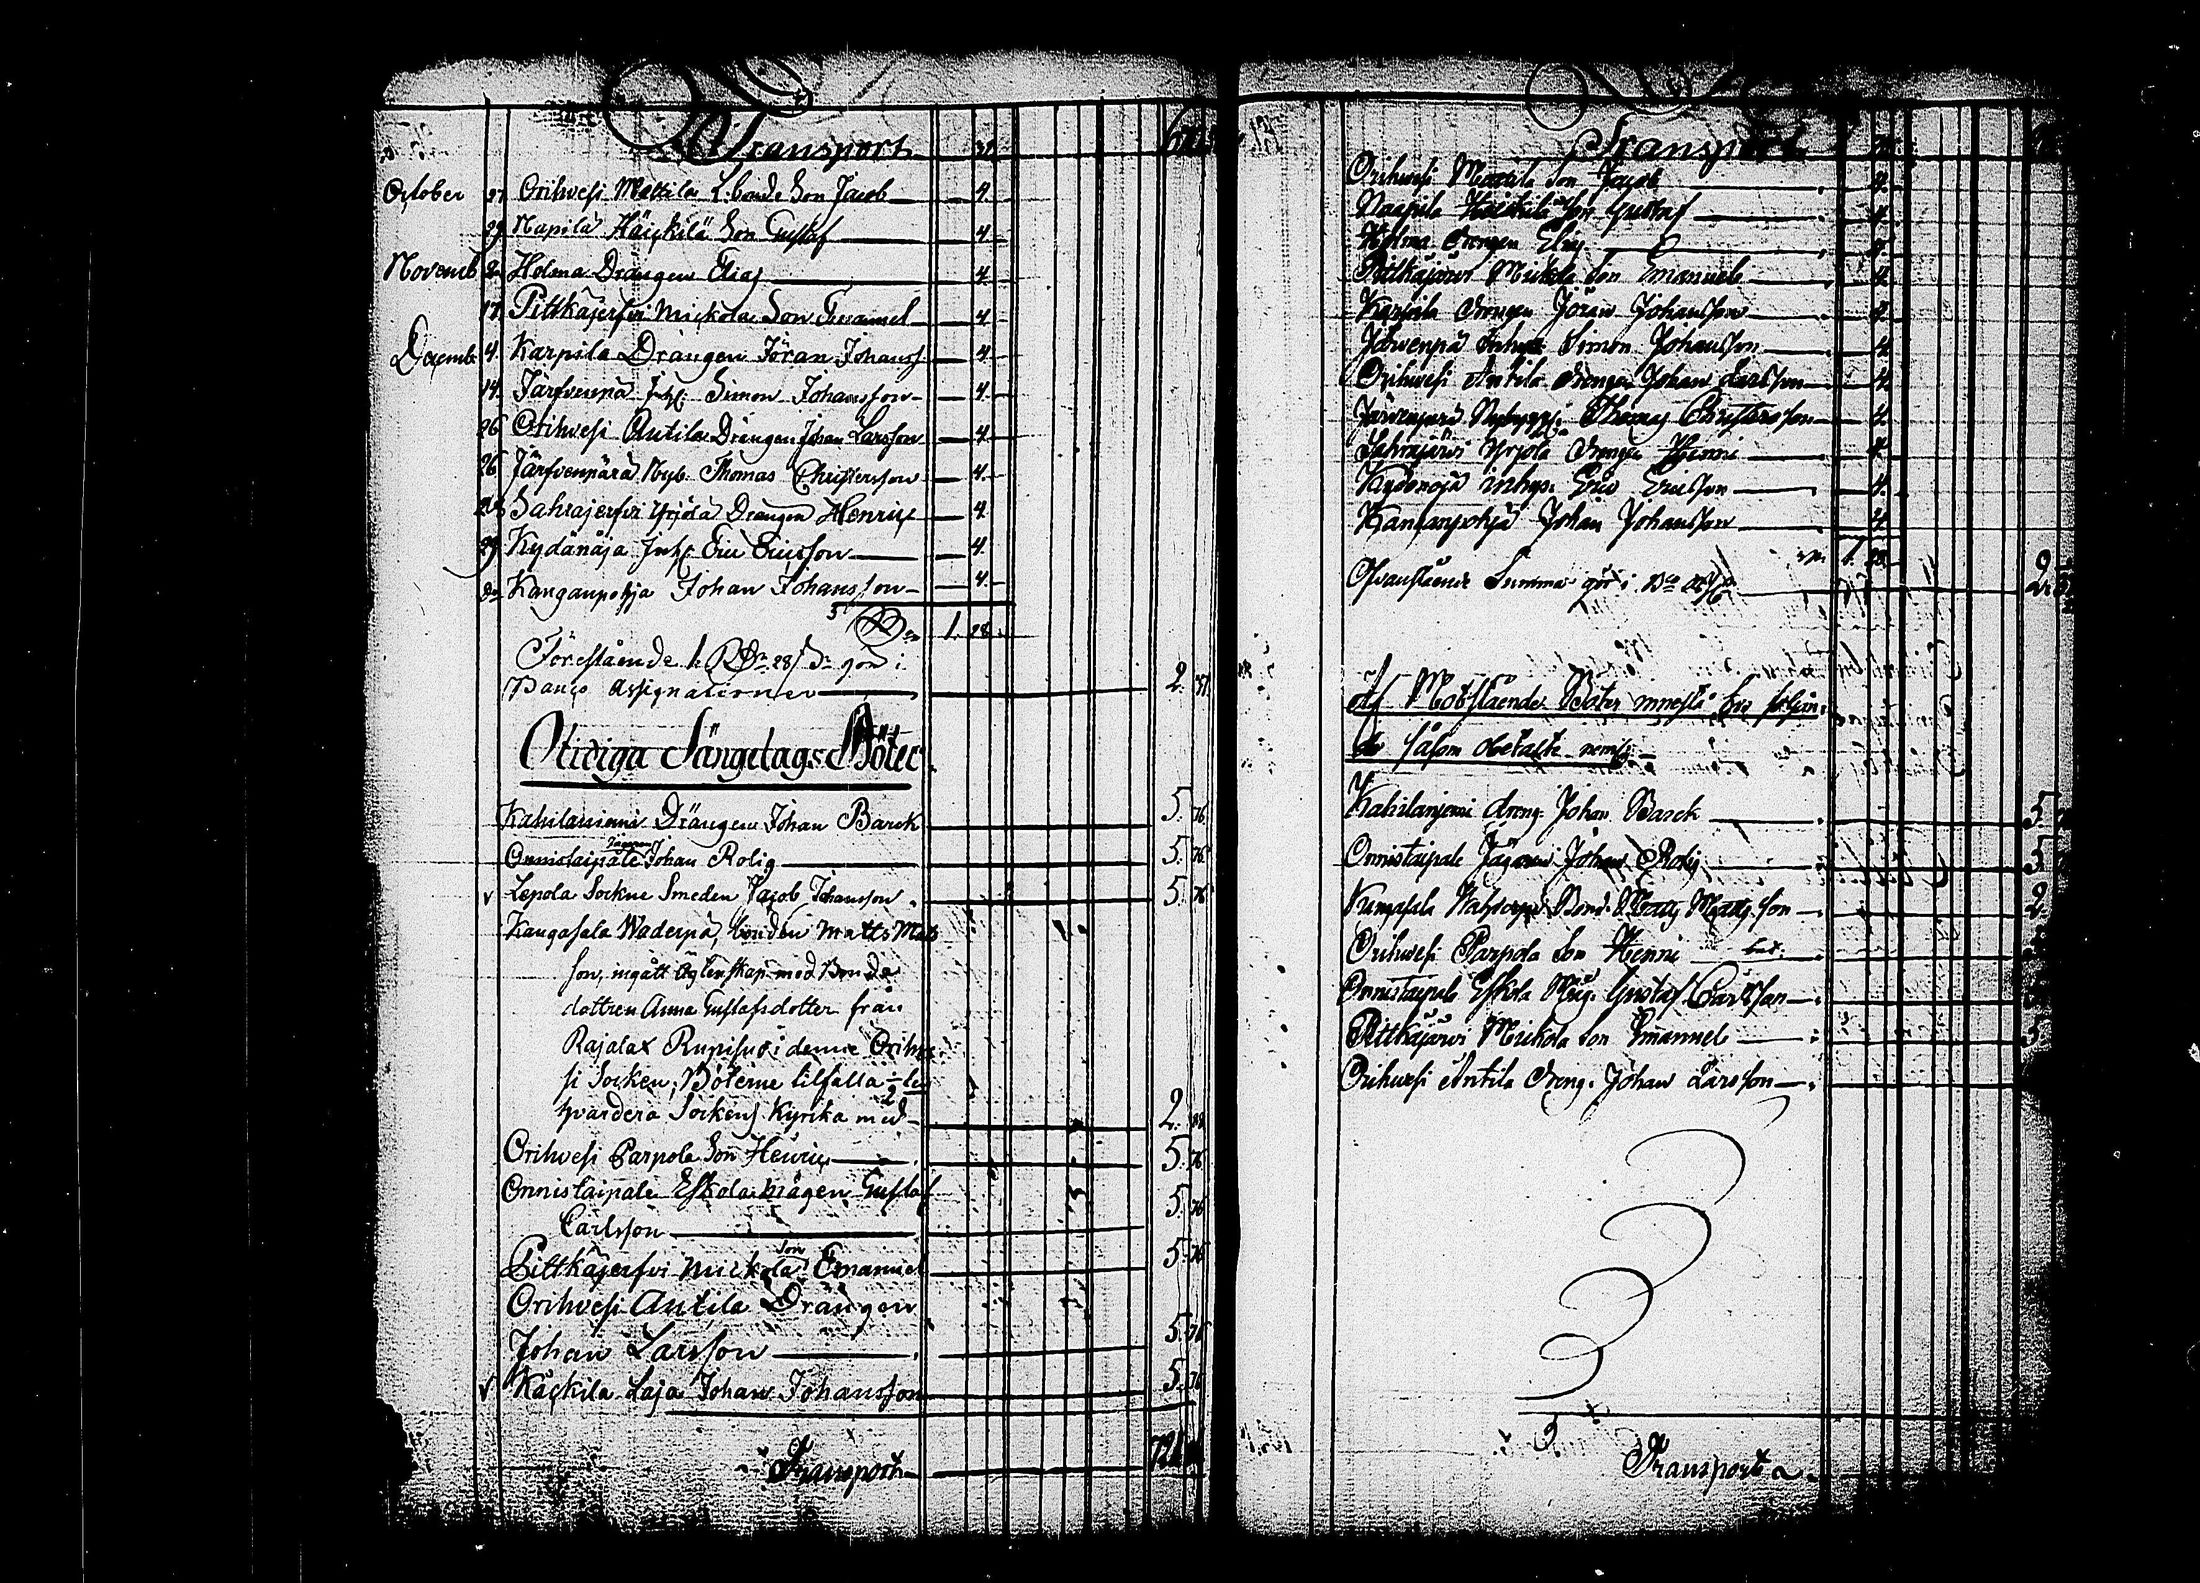 Transport 32 
October 27 Orihvesi Mattila L. bonde Son Jacob 4.
29 Napila Häickilä Son Gustaf 4.
Novemb 2 Holma Drängen Elias 4.
17. Pittkäjerfvi Mickola Son Emanuel 4.
Decemb 4. Karpila Drängen Jöran Johanss. 4.
14. Järfvenpä Inh: Simon Johansson 4.
26 Orihvesi Antila Drängen Johan Larsson 4.
26 Järfvenpärä Nyb. Thomas Christersson 4.
28 Sahrajerfvi Yrjölä Drängen Henric 4.
29 Kydänåja Inh: Eric Ericsson 4.
do Kanganpohja Johan Johansson 4.
1. 28.
Förestående 1. RDr 28 gör i
Banco assignationer 2.
Otidiga Sängelags Böter
Kahilaniemi Drängen Johan Barck 5. 16
Onnistaipale Jägaren Johan Rolig 5. 16
v Lepola Sockne Smeden Jacob Johansson 5. 16
Kangasala Waderpä, bonden Matts Mats
son, ingått Äctenskap med Bonde
dottren Anna Gustafsdotter från
Rajalax Rupisuo i denne Orihve
si Socken; Böterne tilfalla
hvardera Sockens Kyrka med 2.
Orihvesi Parpola Son Henric 5. 16
Onnistaipale Eskola Mågen Gustaf
Carlsson 5. 16
Pittkäjerfvi Mickola Son Emanuel 5. 16
Orihvesi Antila Drängen
Johan Larsson 5. 16
v Käckilä Laja Johan Johansson 5. 16
Transport
Transport
Orihvesi Mattila Son Jacob 4.
Naapila Häickilä Son Gustaf 4.
Holma Drengen Elias 4.
Pittkäjärvi Mickola Son Emanuel 4.
Karpila Drengen Jöran Johansson 4.
Järvenpä Inhys Simon Johansson 4.
Orihvesi Antila Drengen Johan Larsson 4.
Järvenperä Nybygg. Thomas Christersson 4.
Sahrajärvi Yrjölä Drengen Henric 4.
Kydönoja inhys. Eric Ericsson 4.
Kanganpohja Johan Johansson 4.
1. 28.
Ofvanstående Summa gör i 2.
Af Motstående Böter innestå hos följan-
de såsom obetalte nemlig
Kahilanjemi Dreng. Johan Barck 5.
Onnistaipale Jägaren Johan Rolig 5
Kangasala Bond. Matts Matsson 2.
Orihvesi Parpola Son Henric
Onnistaipale Eskola Måg. Gustaf Carlsson
Pittkäjärvi Mickola Son Emanuel 5
Orihvesi Antila Dreng. Johan Larsson
Transport